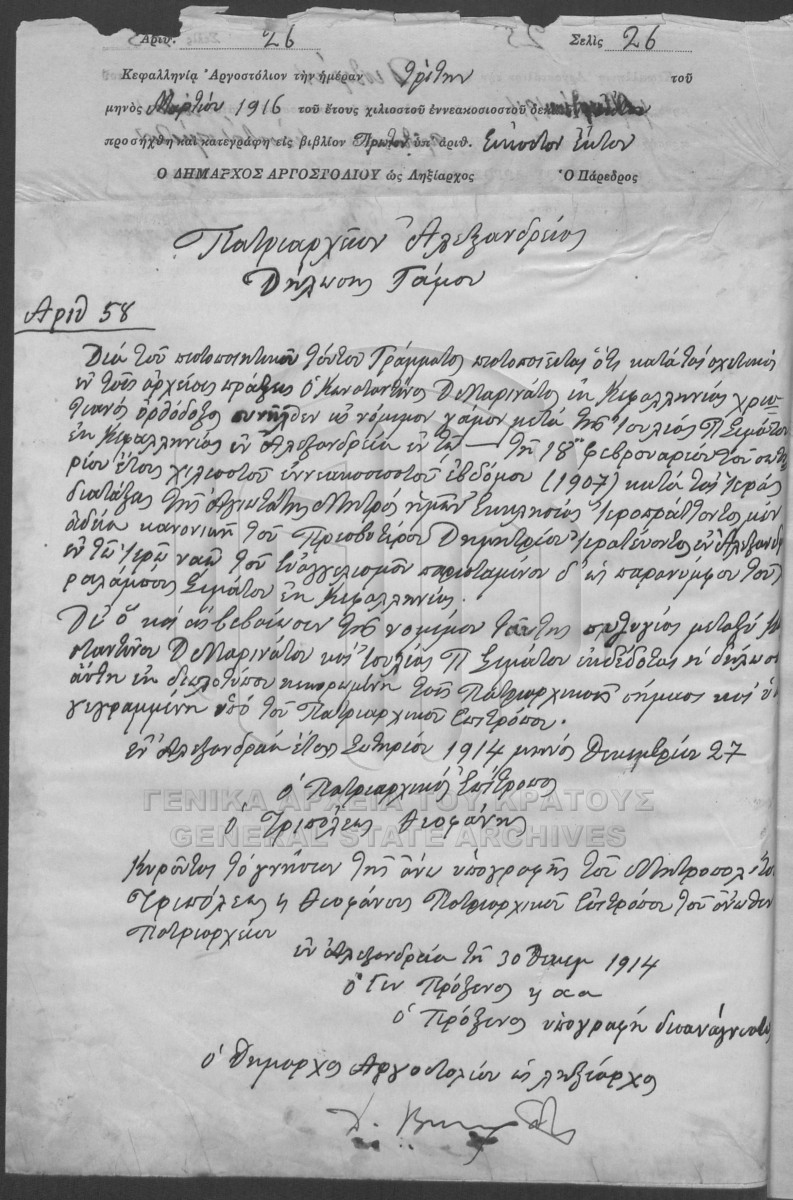 Ἀριθ. 26 Σελὶς 26
Κεφαλληνίᾳ Ἀργοστόλιον τὴν ἡμέραν τρίτην τοῦ
μηνὸς Μαρτίου 1916 τοῦ ἔτους χιλιοστοῦ ἐννεακοσιοστοῦ
προσήχθη καὶ κατεγράφη εἰς βιβλίον Πρῶτον ὑπ' ἀριθ. Εἰκοστὸν ἕκτον
Ο ΔΗΜΑΡΧΟΣ ΑΡΓΟΣΤΟΛΙΟΥ ὡς Ληξίαρχος Ὁ Πάρεδρος
Πατριαρχεῖον Ἀλεξανδρείας
Δήλωσις Γάμου
Αριθ 58
Διὰ τοῦ πιστοποιητικοῦ τούτου Γράμματος πιστοποιεῖται ὅτι κατὰ τὰς σχετικὰς
ἐν τοῖς ἀρχείοις πράξεις ὁ Κωνσταντῖνος Δ Μαρινάτος ἐκ Κεφαλληνίας χρισ-
τιανὸς ὀρθόδοξος συνῆλθεν εἰς νόμιμον γάμον μετὰ τῆς Ἰουλίας Π Σιμάτου
ἐκ Κεφαλληνίας ἐν Ἀλεξανδρείᾳ ἐν τῷ — τῇ 18ῃ Φεβρουαρίου τοῦ σωτη
ρίου ἔτους χιλιοστοῦ ἐννεακοσιοστοῦ ἑβδόμου (1907) κατὰ τὰς ἱερὰς
διατάξεις τῆς ἁγιωτάτης Μητρὸς ἡμῶν Ἐκκλησίας ἱεροπράττοντος μὲν
ἀδείᾳ κανονικῇ τοῦ Πρεσβυτέρου Δημητρίου ἱερατεύοντος ἐν Ἀλεξανδ
ἐν τῷ ἱερῷ ναῷ τοῦ Εὐαγγελισμοῦ παρισταμένου δ' ὡς παρανύμφου τοῦ
ραλάμπους Σιμάτου ἐκ Κεφαλληνίας.
Δι' ὃ καὶ εἰς βεβαίωσιν τῆς νομίμου ταύτης συζυγίας μεταξὺ Κω
σταντίνου Δ Μαρινάτου καὶ Ἰουλίας Π Σιμάτου ἐκδέδοται ἡ δήλωσι
αὕτη ἐν διπλοτύπῳ κεκυρωμένη τοῖς Πατριαρχικοῖς σήμασι καὶ ὑ
γεγραμμένη ὑπὸ τοῦ Πατριαρχικοῦ Ἐπιτρόπου.
ἐν Ἀλεξανδρείᾳ ἔτους Σωτηρίου 1914 μηνὸς Δεκεμβρίου 27
ὁ Πατριαρχικὸς Ἐπίτροπος
ΓΕΝΙΚΑ ΑΡΧΕΙΑ ΤΟΥ ΚΡΑΤΟΥΣ
ὁ Τριπόλεως Θεοφάνης
GENERAL STATE ARCHIVES
Κυροῦται τὸ γνήσιον τῆς ἄνω ὑπογραφῆς τοῦ Μητροπολίτου
Τριπόλεως Θεοφάνους Πατριαρχικοῦ Ἐπιτρόπου τοῦ ἄνωθεν
Πατριαρχείου
ἐν Ἀλεξανδρείᾳ τῇ 30 Δεκεμ 1914
ὁ Γεν Πρόξενος
ὁ Πρόξενος ὑπογραφὴ δυσανάγνωστος
ὁ Δήμαρχος Ἀργοστολίου ὡς ληξίαρχος